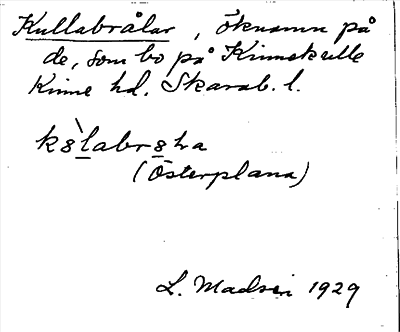 Kullabrålar, öknamn på
de, som bo på Kinnekulle
Kinne hd. Skarab. l.
(Österplana)
L. Madsén 1929